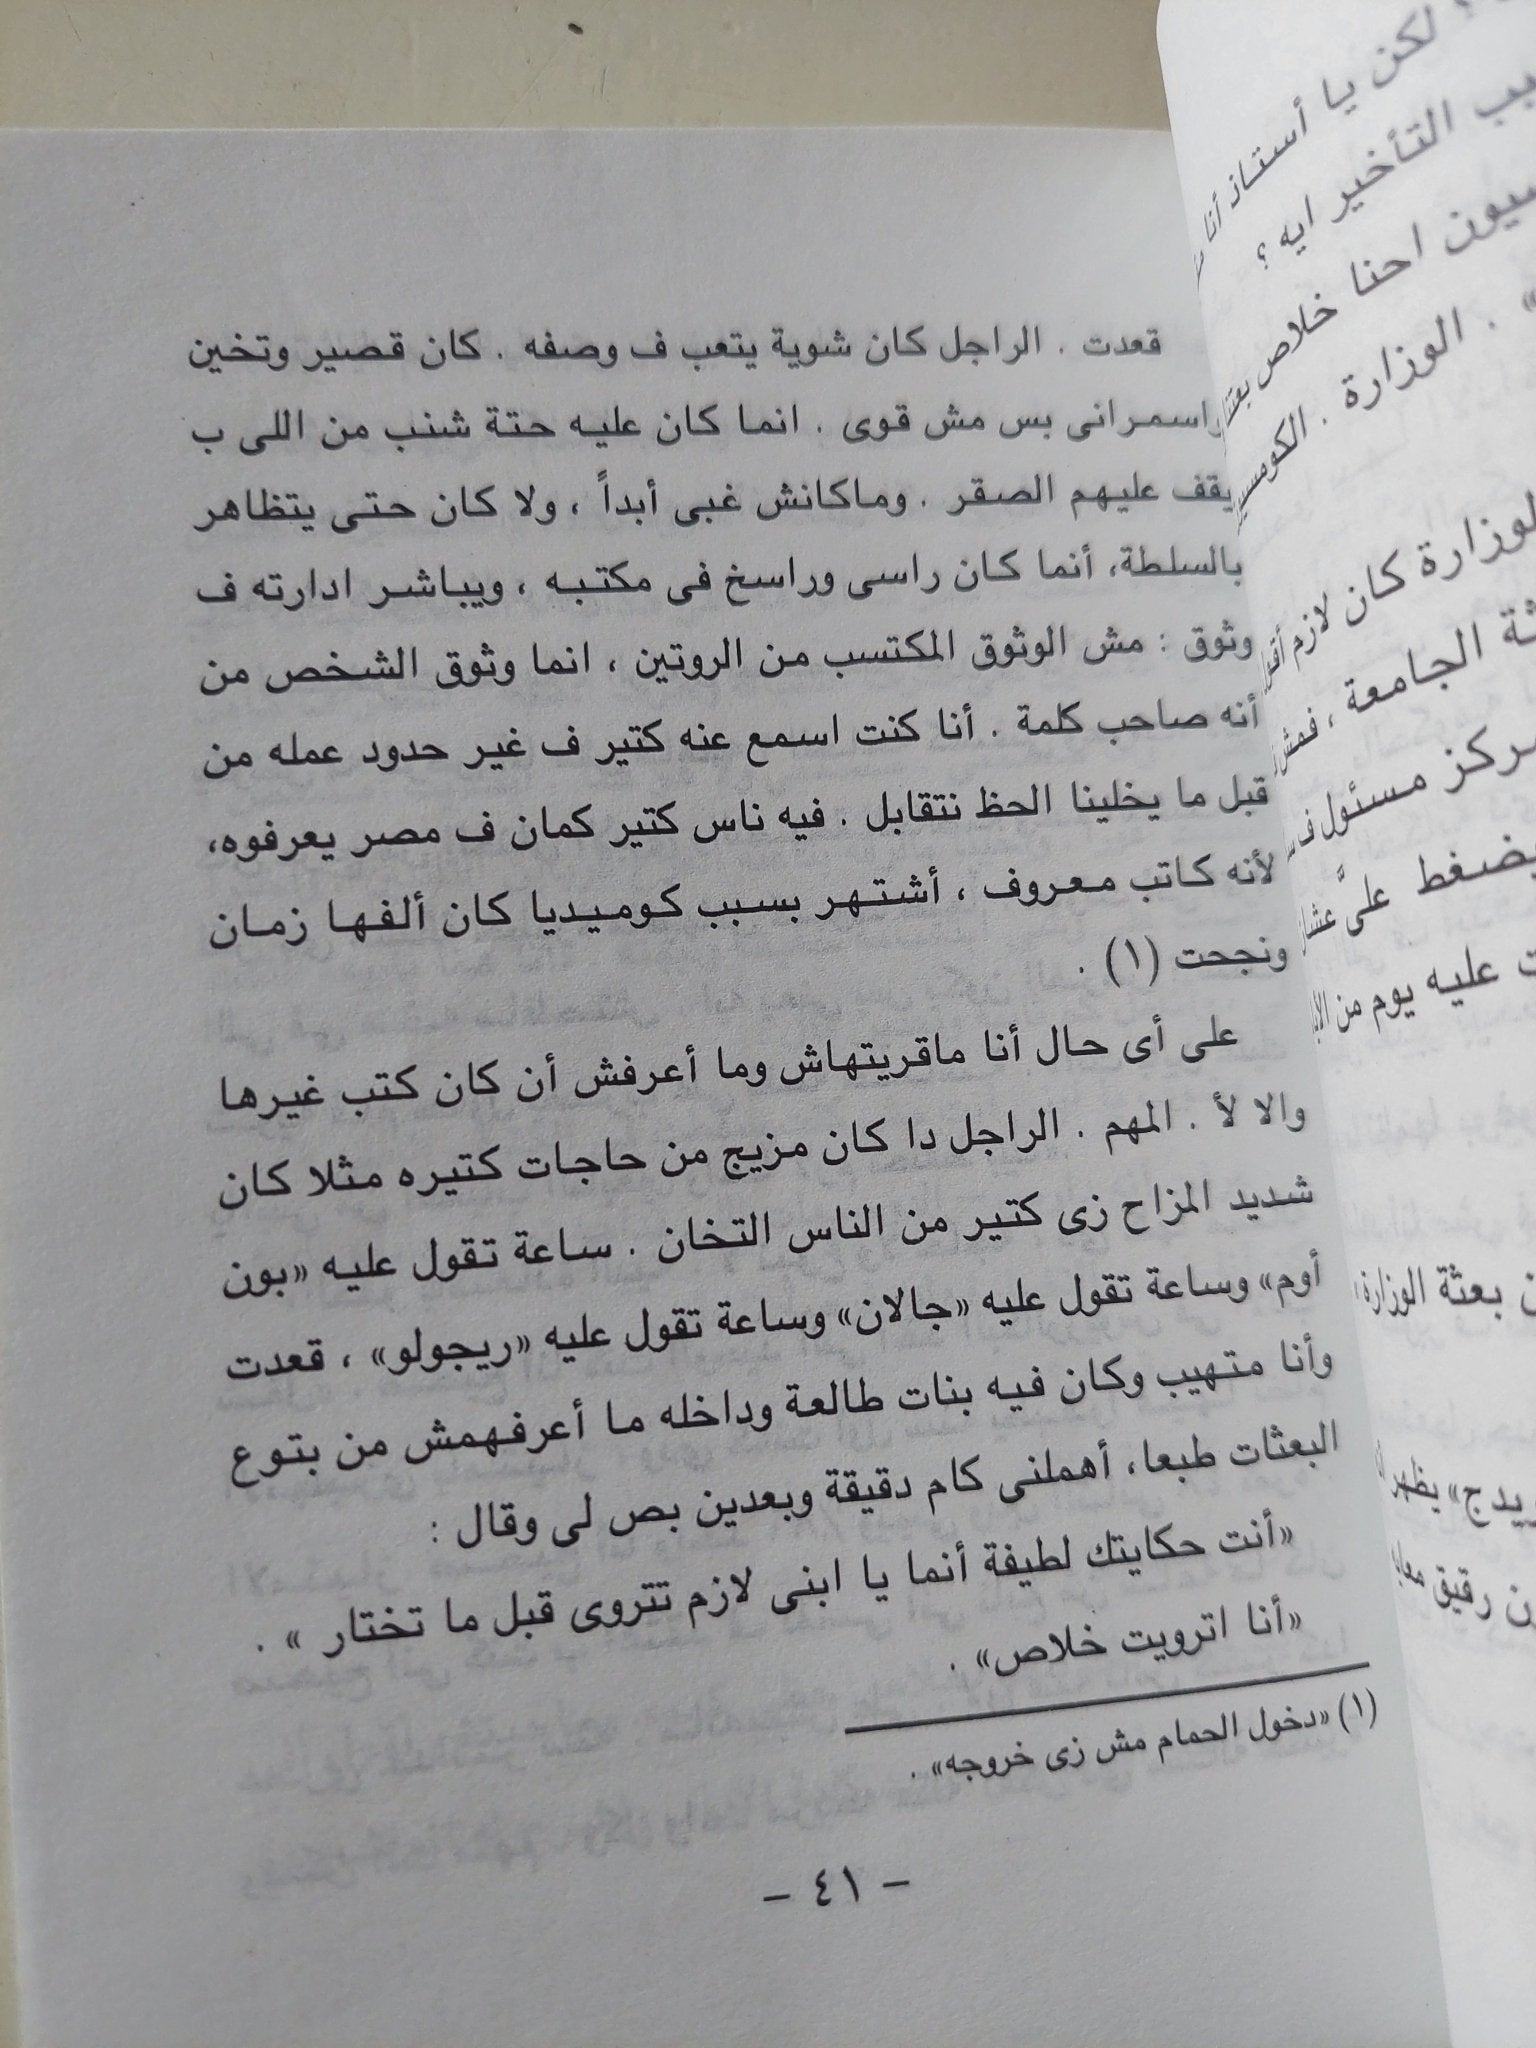 قعدت . الراجل كان شوية يتعب ف وصفه . كان قصير وتخين
واسمرانى بس مش قوى . انما كان عليه حتة شنب من اللى ب
يقف عليهم الصقر . وماكانش غبى أبداً ، ولا كان حتى يتظاهر
بالسلطة، أنما كان راسى وراسخ فى مكتبه ، ويباشر ادارته ف
وثوق : مش الوثوق المكتسب من الروتين ، انما وثوق الشخص من
أنه صاحب كلمة . أنا كنت اسمع عنه كتير ف غير حدود عمله من
قبل ما يخلينا الحظ نتقابل . فيه ناس كتير كمان ف مصر يعرفوه،
لأنه كاتب معروف ، أشتهر بسبب كوميديا كان ألفها زمان
ونجحت (١) .
على أى حال أنا ماقريتهاش وما أعرفش أن كان كتب غيرها
والا لأ . المهم . الراجل دا كان مزيج من حاجات كتيره مثلا كان
شديد المزاح زى كتير من الناس التخان . ساعة تقول عليه «بون
أوم» وساعة تقول عليه «جالان» وساعة تقول عليه «ريجولو» ، قعدت
وأنا متهيب وكان فيه بنات طالعة وداخله ما أعرفهمش من بتوع
البعثات طبعا، أهملنى كام دقيقة وبعدين بص لى وقال :
«أنت حكايتك لطيفة أنما يا ابنى لازم تتروى قبل ما تختار » .
«أنا اترويت خلاص» .
(١) «دخول الحمام مش زى خروجه» .
– ٤١ –
لكن يا أستاذ أنا
التأخير ايه ؟
احنا خلاص
» . الوزارة .
كان لازم
الجامعة ،
مسئول ف
علىَّ عشان
عليه يوم من
بعثة الوزارة
يظهر
رقيق